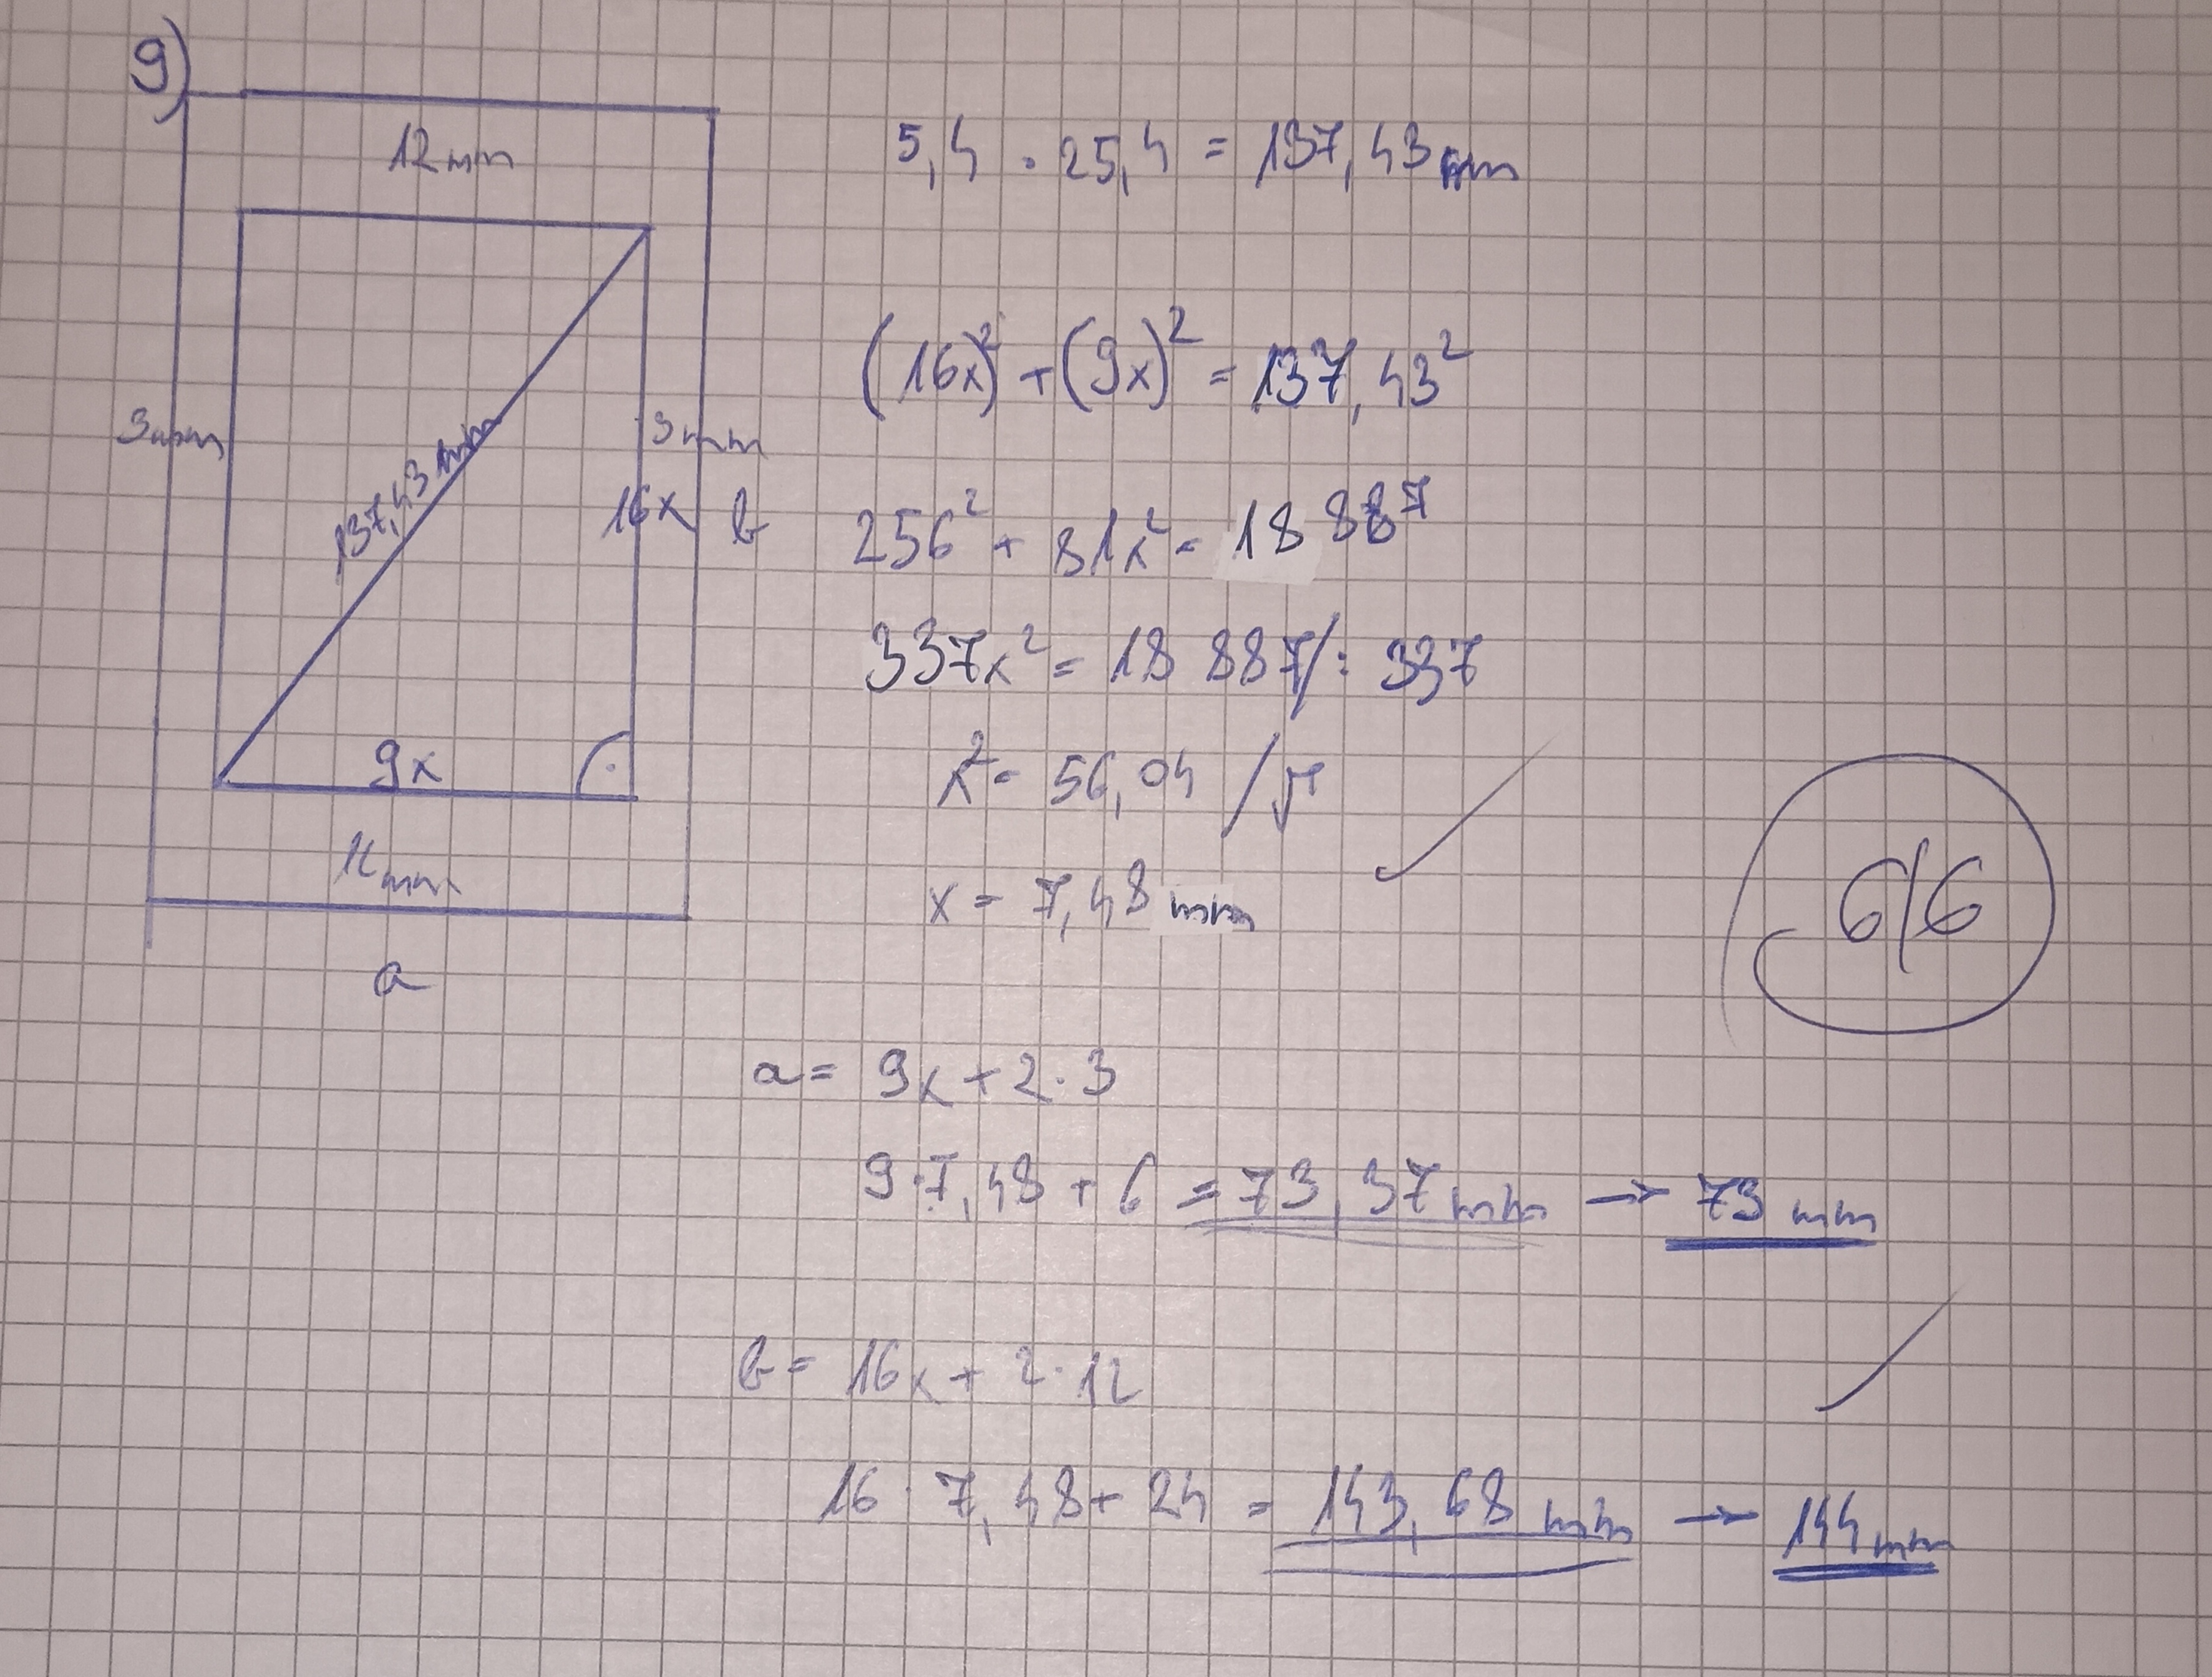 9)
12 mm
3 mm
137,43 mm
3 mm
16x b
9x
12 mm
a
5,4 · 25,4 = 137,43 mm
(16x)² + (9x)² = 137,43²
256² + 81x² = 18 887
337x² = 18 887 /: 337
x² = 56,04 /√
x = 7,48 mm
6/6
a = 9x + 2·3
9·7,48 + 6 = 73,37 mm → 73 mm
b = 16x + 2·12
16 · 7,48 + 24 = 143,68 mm → 144 mm